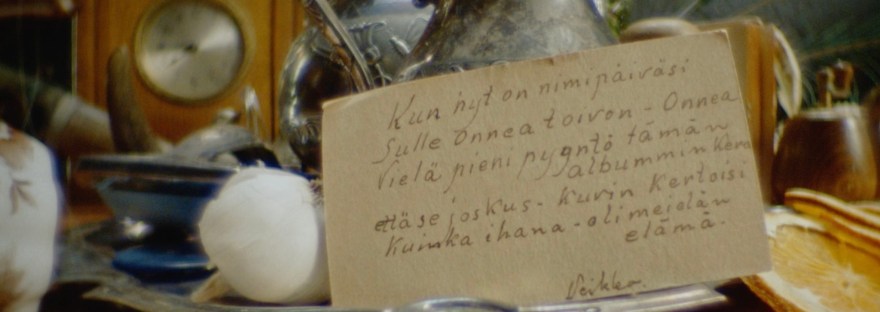 Kun nyt on nimipäiväsi
Sulle onnea toivon - Onnea
Vielä pieni pyyntö tämän
albummin kera
että se joskus - kuvin kertoisi
Kuinka ihana - oli meidän
elämä.
Veikko